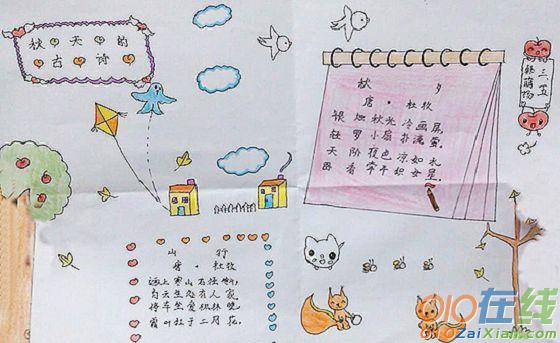 秋天的
古诗
秋 夕
唐·杜牧
银烛秋光冷画屏,
轻罗小扇扑流萤.
天阶夜色凉如水,
卧看牵牛织女星.
山 行
唐·杜牧
远上寒山石径斜,
白云生处有人家,
停车坐爱枫林晚,
霜叶红于二月花.
010在线
010ZaiXian.com